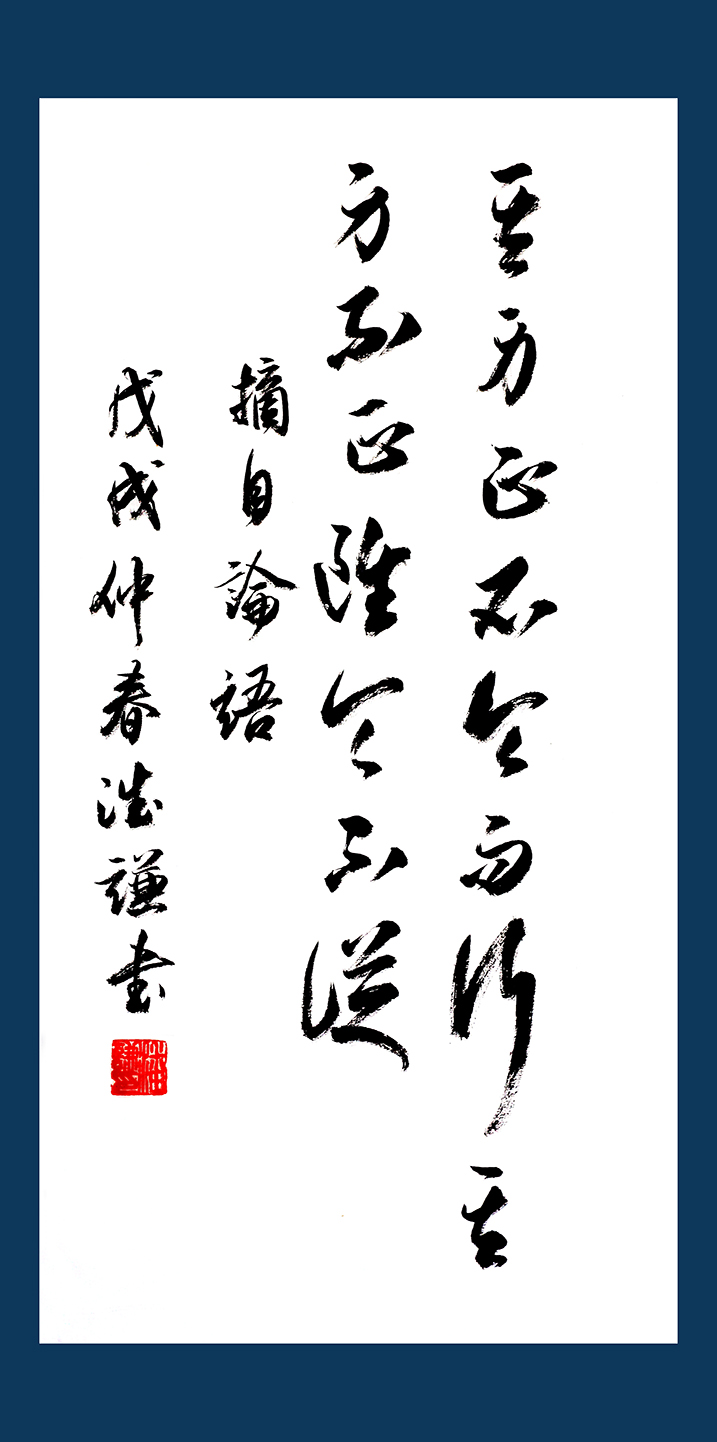 其身正不令而行其
身不正雖令不從
摘自論語
戊戌仲春謙书